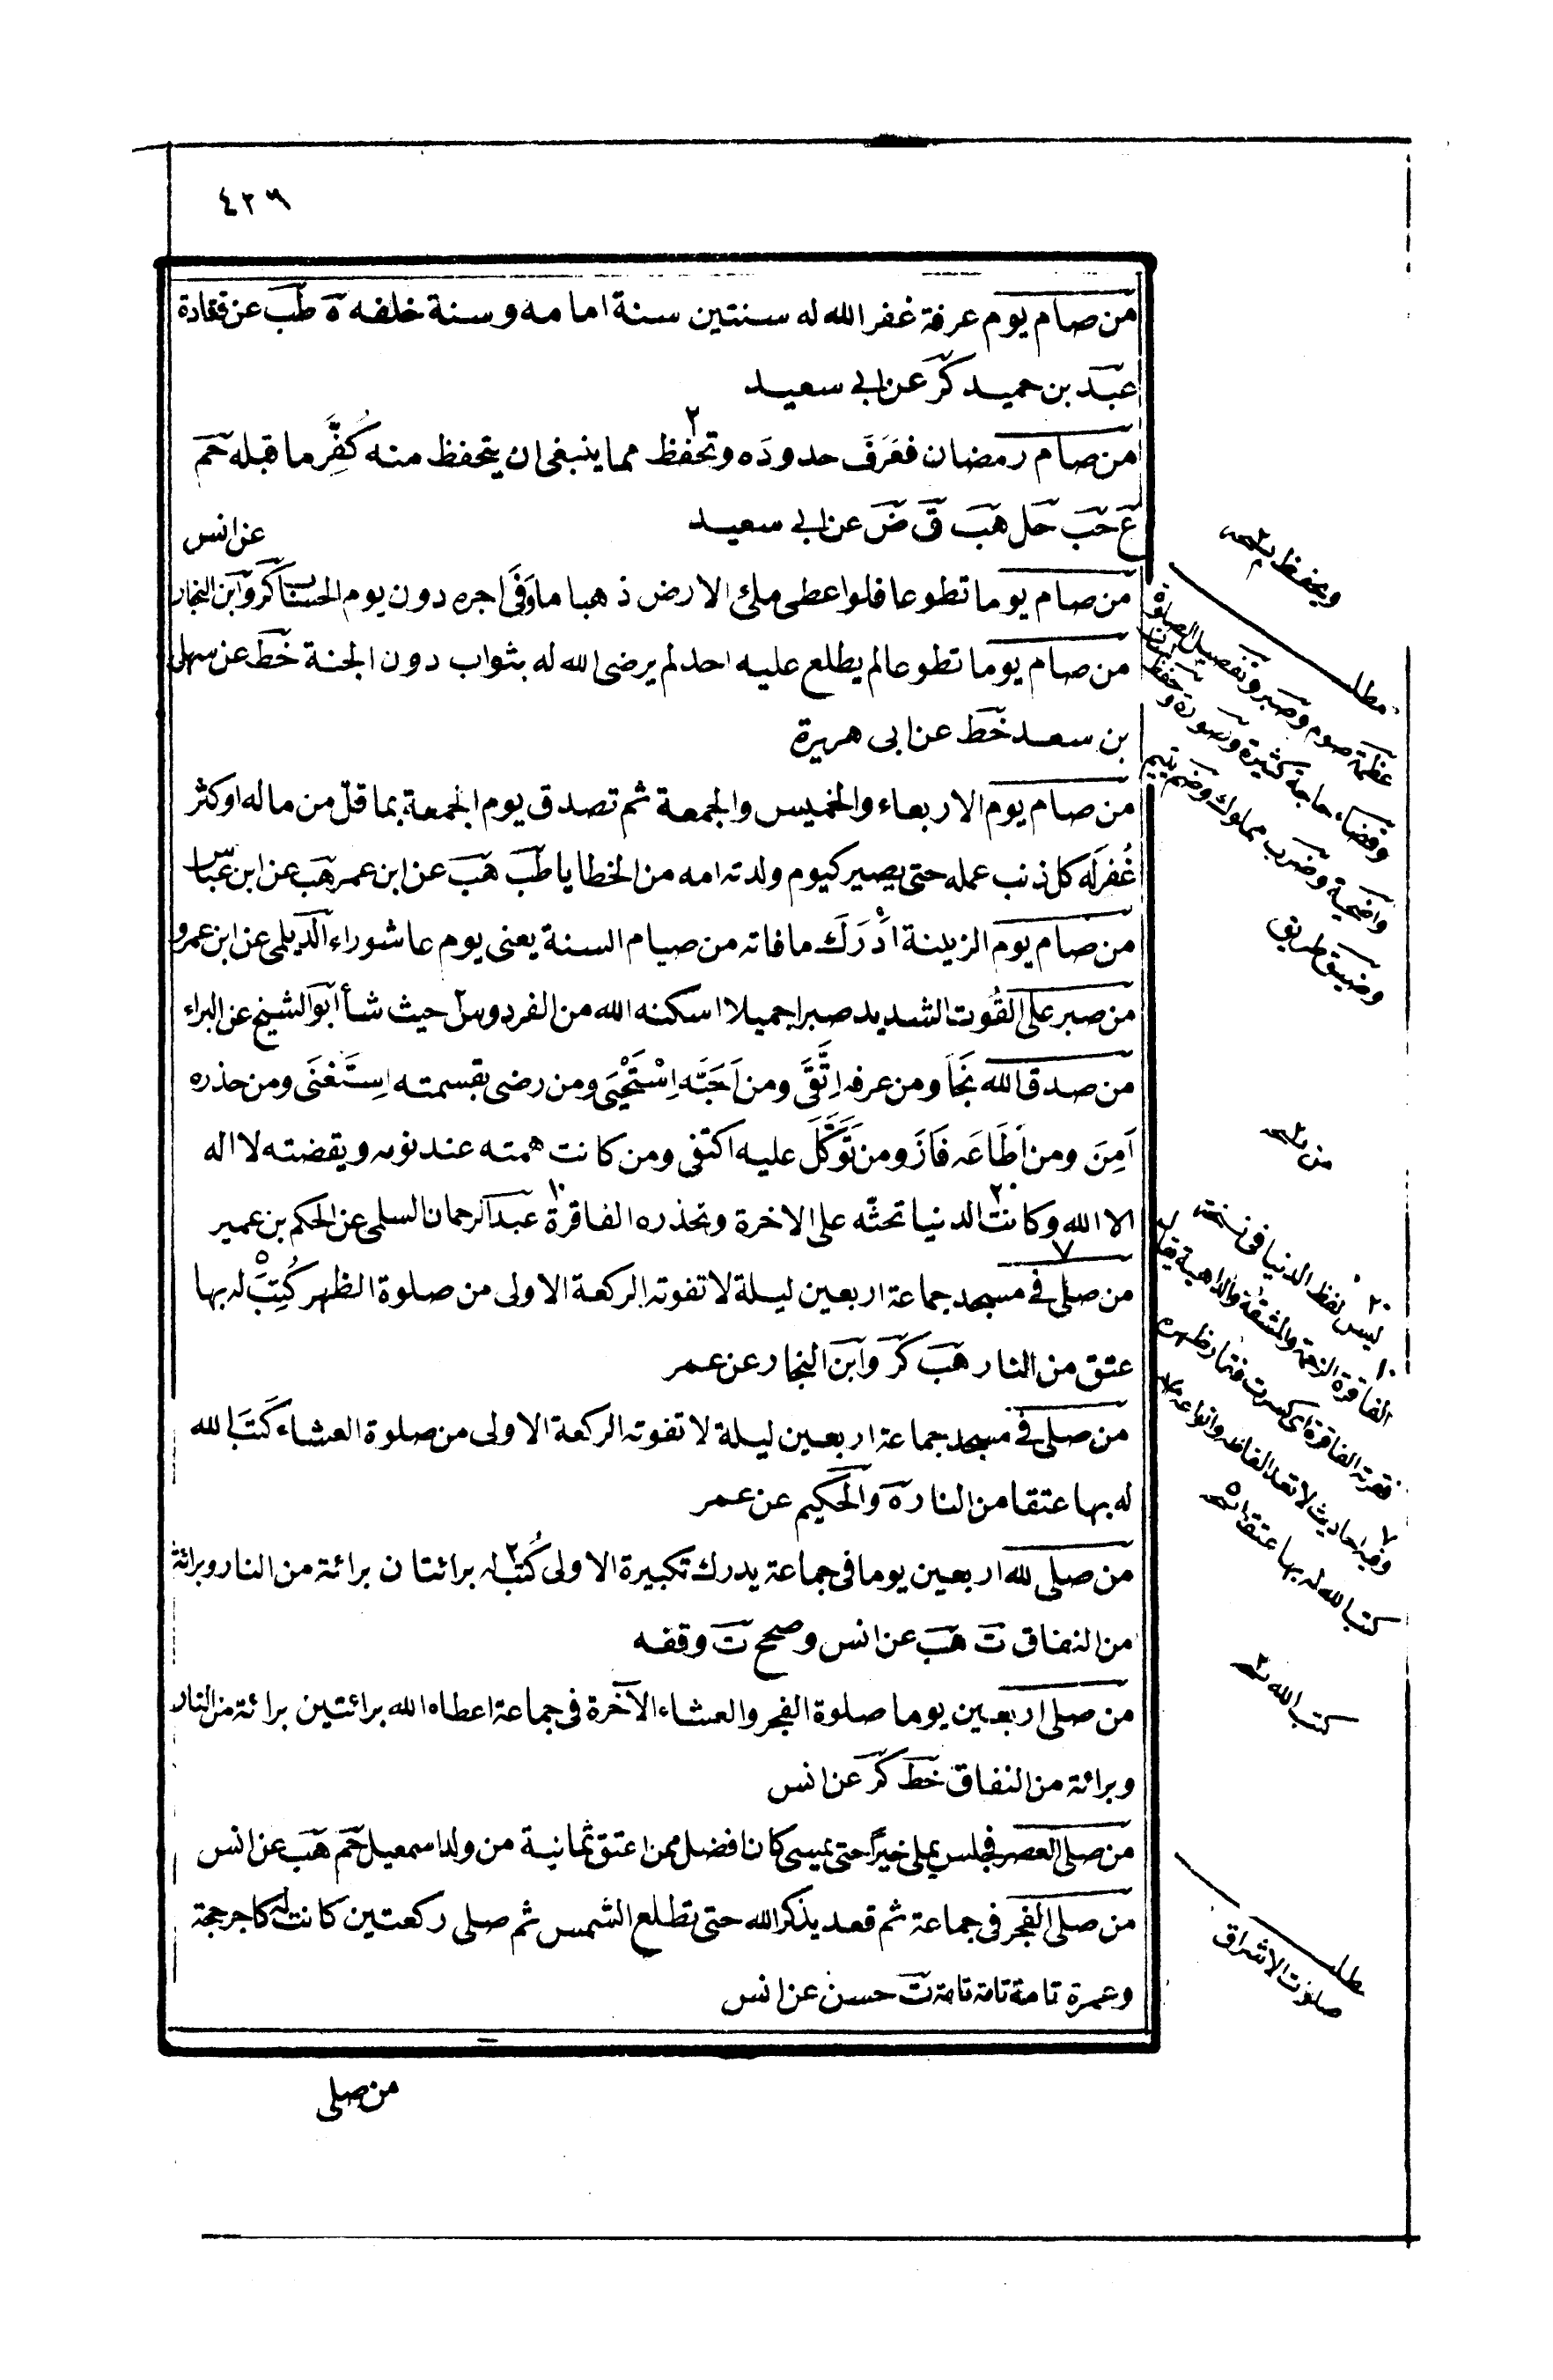 ٤٢٩
من صام يوم عرفة غفر الله له سنتين سنة امامه وسنة خلفه ه طب عن قتادة
عبد بن حميد كر عن ابى سعيد
من صام رمضان فعَرَفَ حدودَه وتحفظ٢ مما ينبغى ان يتحفظ منه كُفِّرَ ما قبله حم
ع حب حل هب ق ض عن ابى سعيد
عن انس
من صام يوما تطوعا فلو اعطى ملئ الارض ذهبا ما وَفَى اجره دون يوم الحساب كر وابن النجار
من صام يوما تطوعا لم يطلع عليه احد لم يرضى الله له بثواب دون الجنة خط عن سهل
بن سعد خط عن ابى هريرة
من صام يوم الاربعاء والخميس والجمعة ثم تصدق يوم الجمعة بما قل من ماله او كثر
غُفِرَ له كل ذنب عمله حتى يصير كيوم ولدته امه من الخطايا طب هب عن ابن عمر هب عن ابن عباس
من صام يوم الزينة اَدْرَكَ ما فاته من صيام السنة يعنى يوم عاشوراء الديلمى عن ابن عمرو
من صبر على القُوت الشديد صبرا جميلا اسكنه الله من الفردوس٢ حيث شأ ابو الشيخ عن البراء
من صدق الله نَجَا ومن عرفه اِتَّقَى ومن اَحَبَّه اِسْتَحْيَى ومن رضى بقسمته اِسْتَغْنَى ومن حذره
اَمِنَ ومن اَطَاعَه فَازَ ومن تَوَكَّلَ عليه اكتفى ومن كانت همته عند نومه ويقضته لا اله
الا الله وكانت الدنيا٢٠ تحثّه على الاخرة وتحذره الفاقرة١٠ عبد الرحمان السلمى عن الحكم بن عمير
من صلى فى مسجد٧ جماعة اربعين ليلة لا تفوته الركعة الاولى من صلوة الظهر كُتِبَ٥ له بها
عتق من النار هب كر وابن النجار عن عمر
من صلى فى مسجد جماعة اربعين ليلة لا تفوته الركعة الاولى من صلوة العشاء كَتَبَ الله
له بها عتقا من النار ه والحكيم عن عمر
من صلى لله اربعين يوما فى جماعة يدرك تكبيرة الاولى كُتب٢ له برائتان برائة من النار وبرائة
من النفاق ت هب عن انس وصحح ت وقفه
من صلى اربعين يوما صلوة الفجر والعشاء الآخرة فى جماعة اعطاه الله برائتين برائة من النار
وبرائة من النفاق خط كر عن انس
من صلى العصر فجلس يملى خيرًا حتى يمسى كان افضل ممن اعتق ثمانية من ولد اسمعيل حم هب عن انس
من صلى الفجر فى جماعة ثم قعد يذكر الله حتى تطلع الشمس ثم صلى ركعتين كانت له كاجر حجة
وعمرة تامة تامة تامة ت حسن عن انس
من صلى
مطلب
عظمة صوم وصبر وتفصيل الصلوة
وقضاء حاجة كثيرة وصورة وحفظ
واضحية وضرب مملوك وضم يتيم
وضيق طريق
٢٠ ليس لفظ الدنيا فى نسخة
١٠ الفاقرة الزحمة والمشقة والداهية يقال
فقرته الفاقرة اى كسرت فقار ظهره
كتب الله له بها عتقا
كتب الله
مطلب
صلوت الاشراق